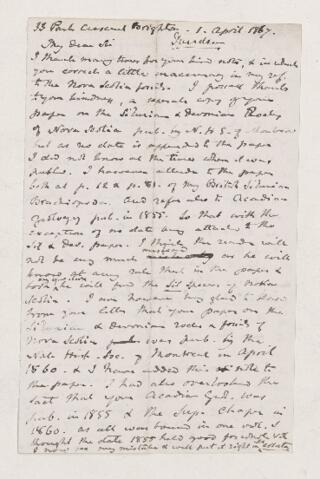 33 Park Crescent Brighton - 1. April 1867.
My Dear Sir
I thank you for your kind note, & in which
you correct a little inaccuracy in my ref.
to the Nova Scotia fossils. I possess thanks
to your kindness, a separate copy of your
paper on the Silurian & Devonian Rocks
of Nova Scotia pub. by N. H. S. of Montreal
but as no date is appended to the paper
I did not know at the time when it was
publis. I however allude to the paper
both at p. 12 & p. 81. of my British Silurian
Brachiopoda. and refer also to Acadian
Geology pub. in 1855. So that with the
exception of no date being attached to the
Sil & Dev. paper. I think the reader will
not be very much as he will
know at any rate that in the paper &
book he will find the Sil species of Nova
Scotia. I am however very glad to know
from your letter that your paper on the
Silurian & Devonian rocks & fossils of
Nova Scotia was pub. by the
Nat. Hist. Soc. of Montreal in April
1860 & I have added this note to
the paper. I had also overlooked the
fact that your Acadian Geol. was
pub. in 1855 & the Sup. Chapter in
1860. as all was bound in one vol. I
thought the date 1855 held good for whole vol.
I now see my mistake & will put it right